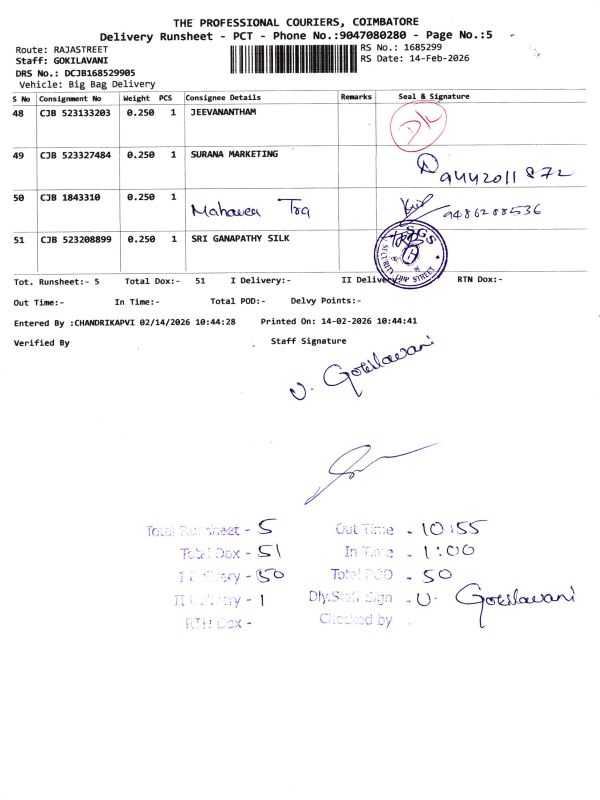 THE PROFESSIONAL COURIERS, COIMBATORE
Delivery Runsheet - PCT - Phone No.:9047080280 - Page No.:5
Route: RAJASTREET
RS No.: 1685299
Staff: GOKILAVANI
RS Date: 14-Feb-2026
DRS No.: DCJB168529905
Vehicle: Big Bag Delivery
S No Consignment No Weight PCS Consignee Details Remarks Seal & Signature
48 CJB 523133203 0.250 1 JEEVANANTHAM
49 CJB 523327484 0.250 1 SURANA MARKETING 9442011872
50 CJB 1843310 0.250 1 9486288536
51 CJB 523208899 0.250 1 SRI GANAPATHY SILK SGS SECURITY STREET
Tot. Runsheet:- 5 Total Dox:- 51 I Delivery:- II Delivery:- RTN Dox:-
Out Time:- In Time:- Total POD:- Delvy Points:-
Entered By :CHANDRIKAPVI 02/14/2026 10:44:28 Printed On: 14-02-2026 10:44:41
Verified By Staff Signature
U. Gokilavani
Total Runsheet - 5 Out Time - 10:55
Total Dox - 51 In Time - 1:00
I Delivery - 50 Total POD - 50
II Delivery - 1 Dly.Staff Sign - U. Gokilavani
RTH Dox - Checked by